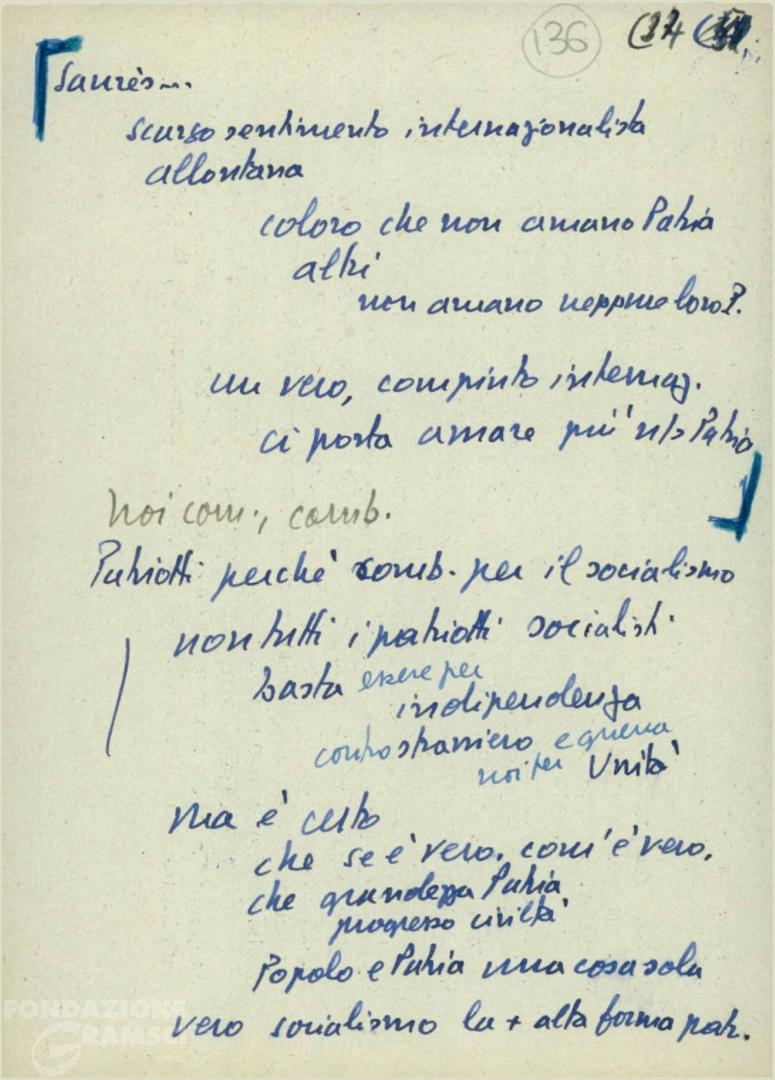 136 (24
Jaurès...
scarso sentimento internazionalista
allontana
coloro che non amano Patria
altri
non amano neppure loro?
un vero, compiuto internaz.
ci porta amare più ns Patria
Noi com., comb.
Patriotti perchè comb. per il socialismo
non tutti i patriotti socialisti
basta essere per
indipendenza
contro straniero e guerra
noi per Unità
ma è certo
che se è vero, com'è vero,
che grandezza Patria
progresso civiltà
Popolo e Patria una cosa sola
vero socialismo la + alta forma patr.
FONDAZIONE
GRAMSCI